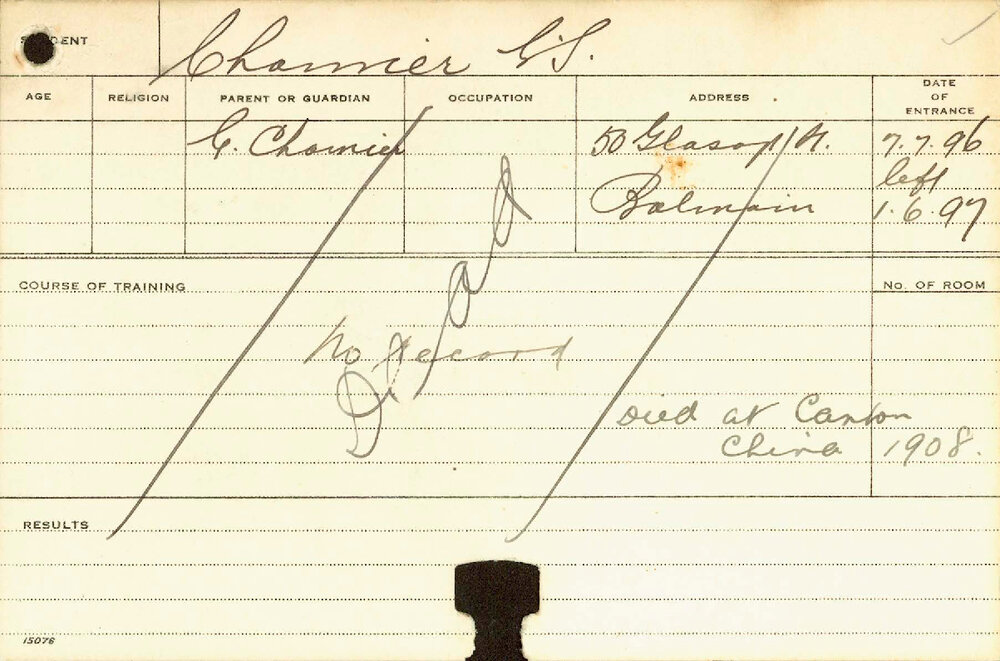 STUDENT Chamier G.S.
AGE RELIGION PARENT OR GUARDIAN OCCUPATION ADDRESS DATE OF ENTRANCE
G. Chamier 50 Glasop St. 7.7.96
left
Balmain 1.6.97
Dead
COURSE OF TRAINING No. OF ROOM
No record
Died at Canton
China 1908.
RESULTS
15076